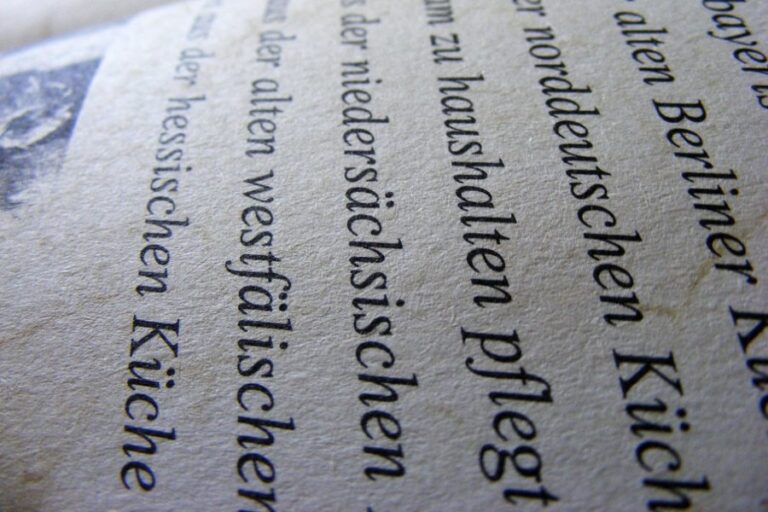 bayeris
alten Berliner Küc
er norddeutschen Küch
am zu haushalten pflegt
s der niedersächsischen
aus der alten westfälischen
aus der hessischen Küche